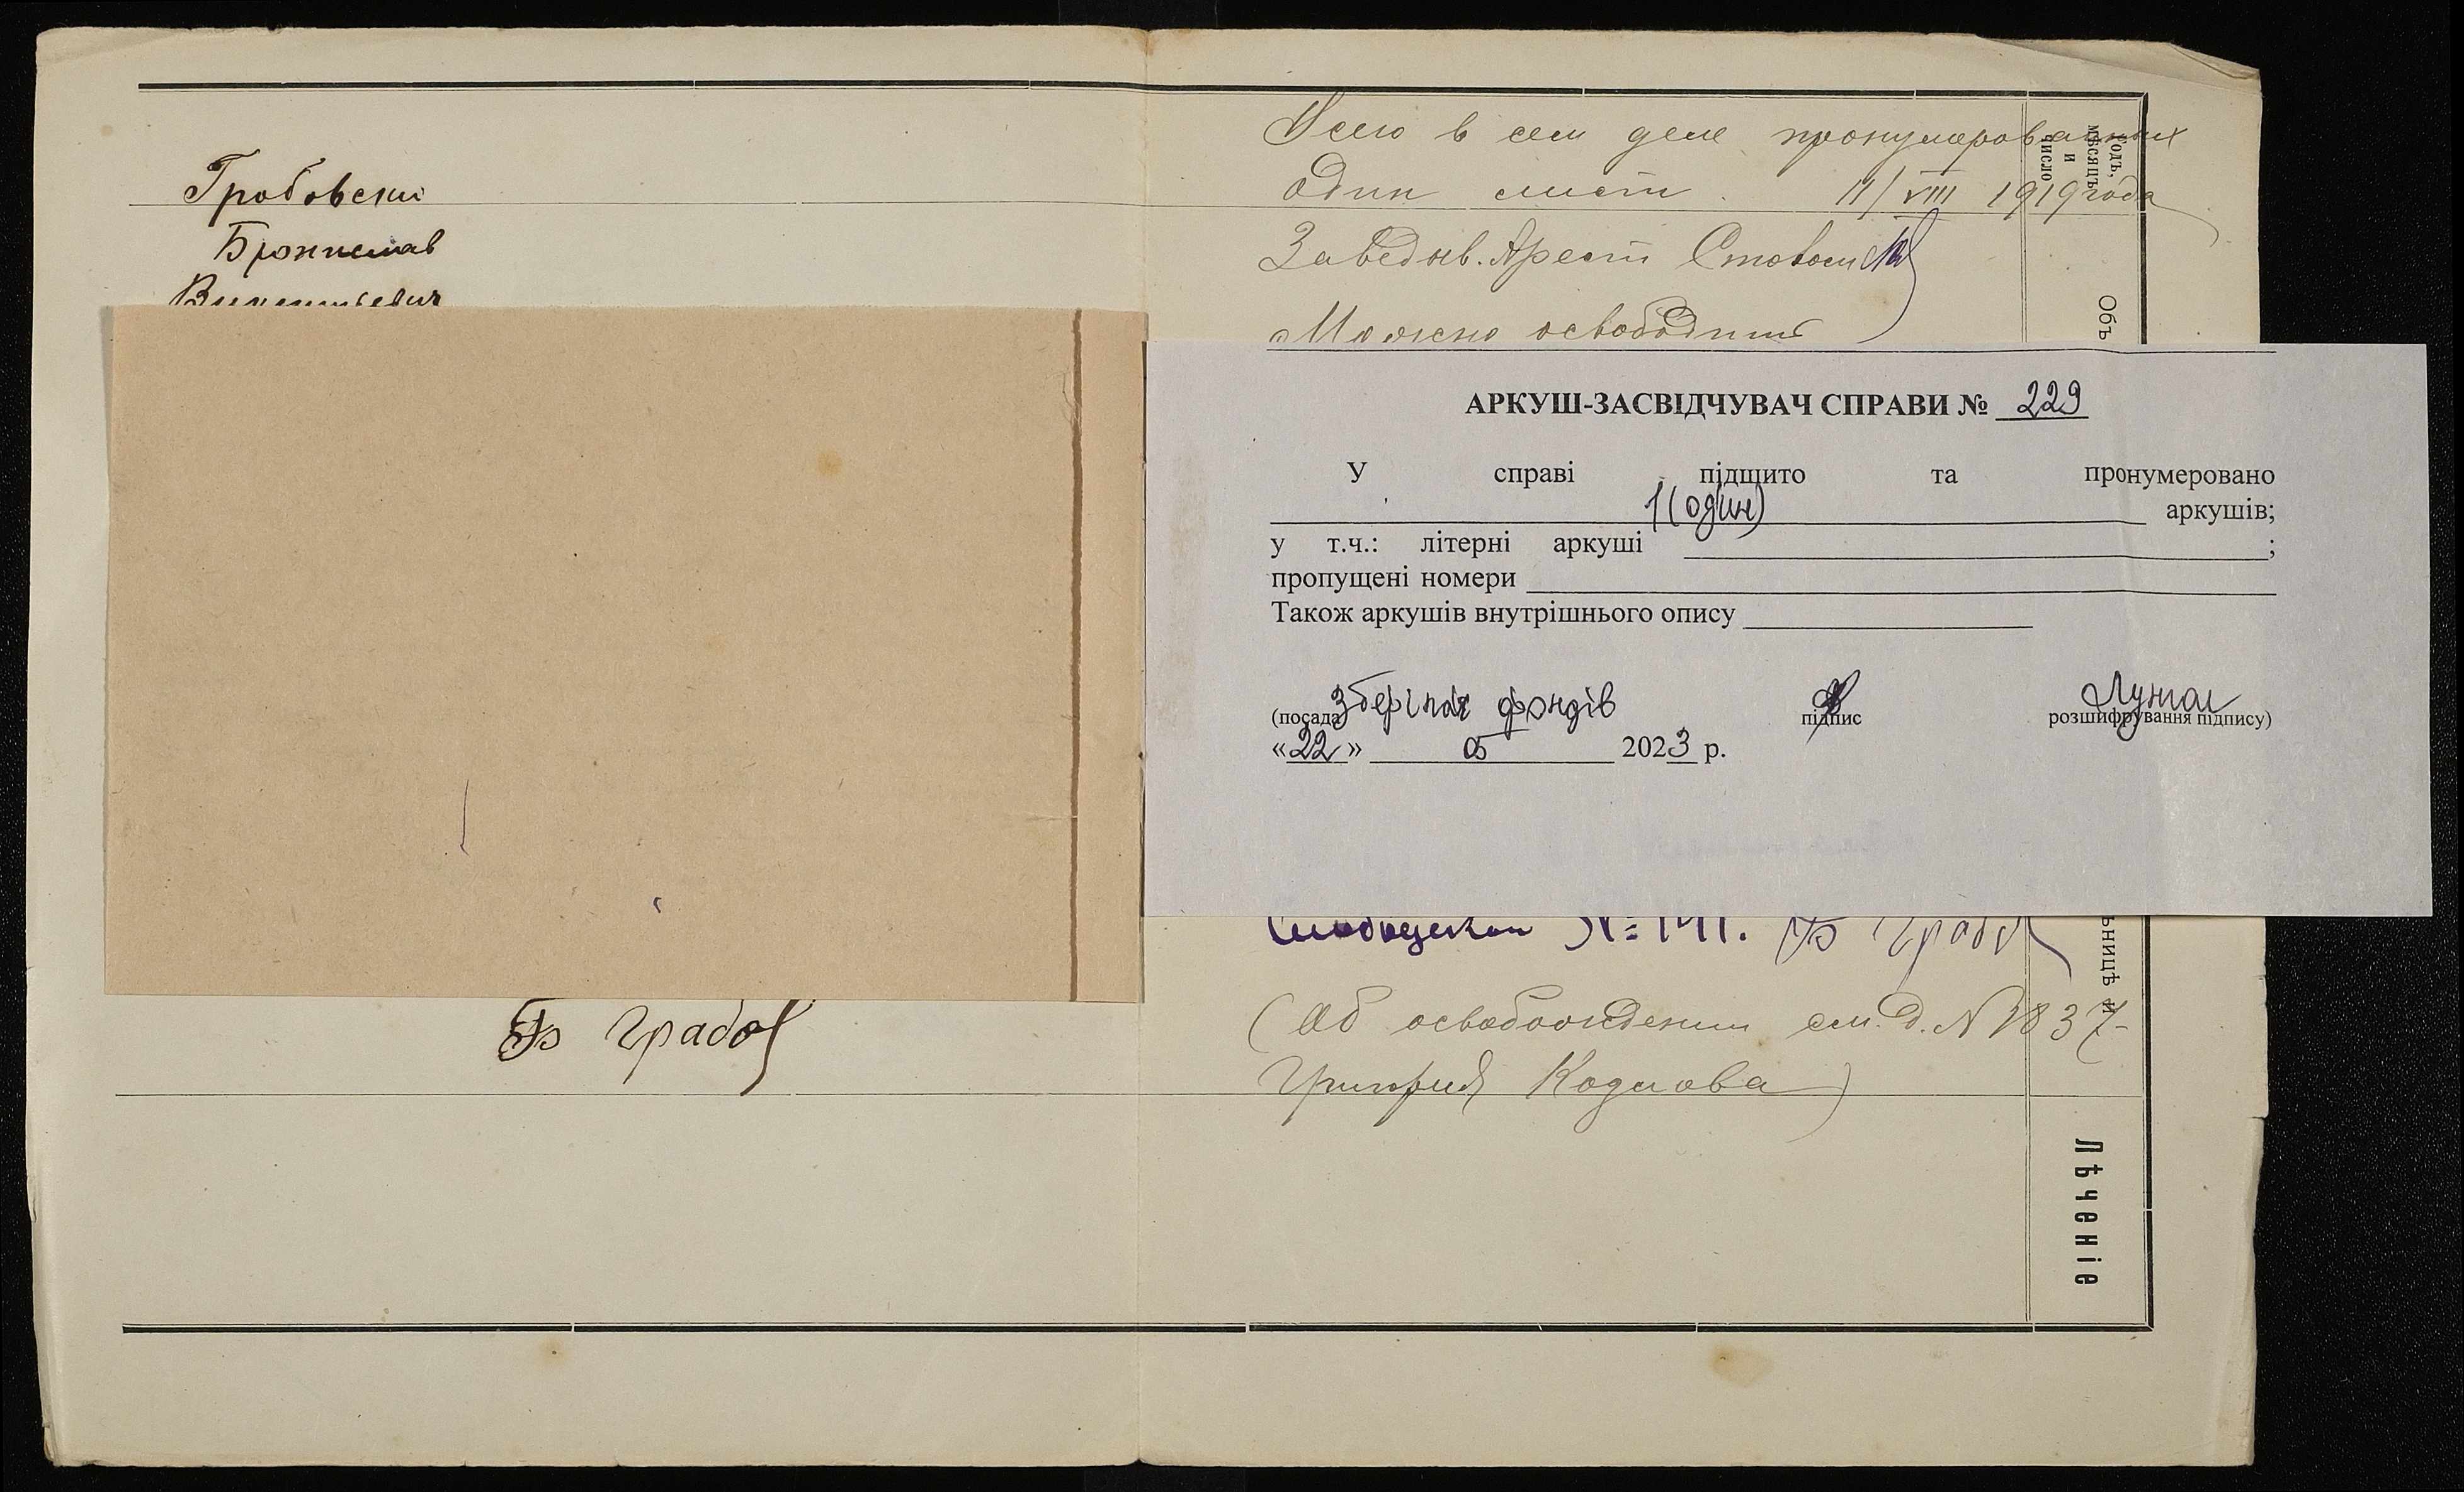 Грабовски
Бронислав
Викентьевич
Б Грабо
Всего в сем деле пронумерованных
один лист. 11/VIII 1919 года
Заведыв. Арест
Можно освободить
годъ,
мѣсяцъ
и
число
Объ
АРКУШ-ЗАСВІДЧУВАЧ СПРАВИ № 229
У справі підшито та пронумеровано
1 (один) аркушів;
у т.ч.: літерні аркуші ;
пропущені номери
Також аркушів внутрішнього опису
Зберігач фондів
(посада підпис розшифрування підпису)
«22» 05 2023 р.
№ 141. Б Грабо
ьницѣ и
(Об освобождении см. д. №
Григория Кодлова)
Лѣченіе